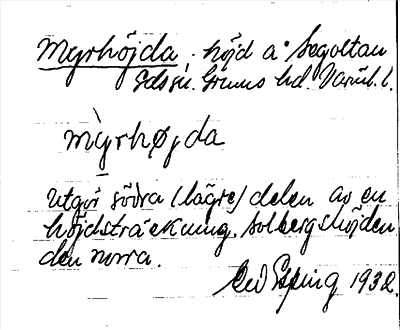 Myrhöjda, höjd å Segoltan
Edssn. Grums hd. Värml. l.
mỳrhøjda
Utgör södra (lägre) delen av en
höjdsträckning. Solbergshöjden
den norra.
1932.